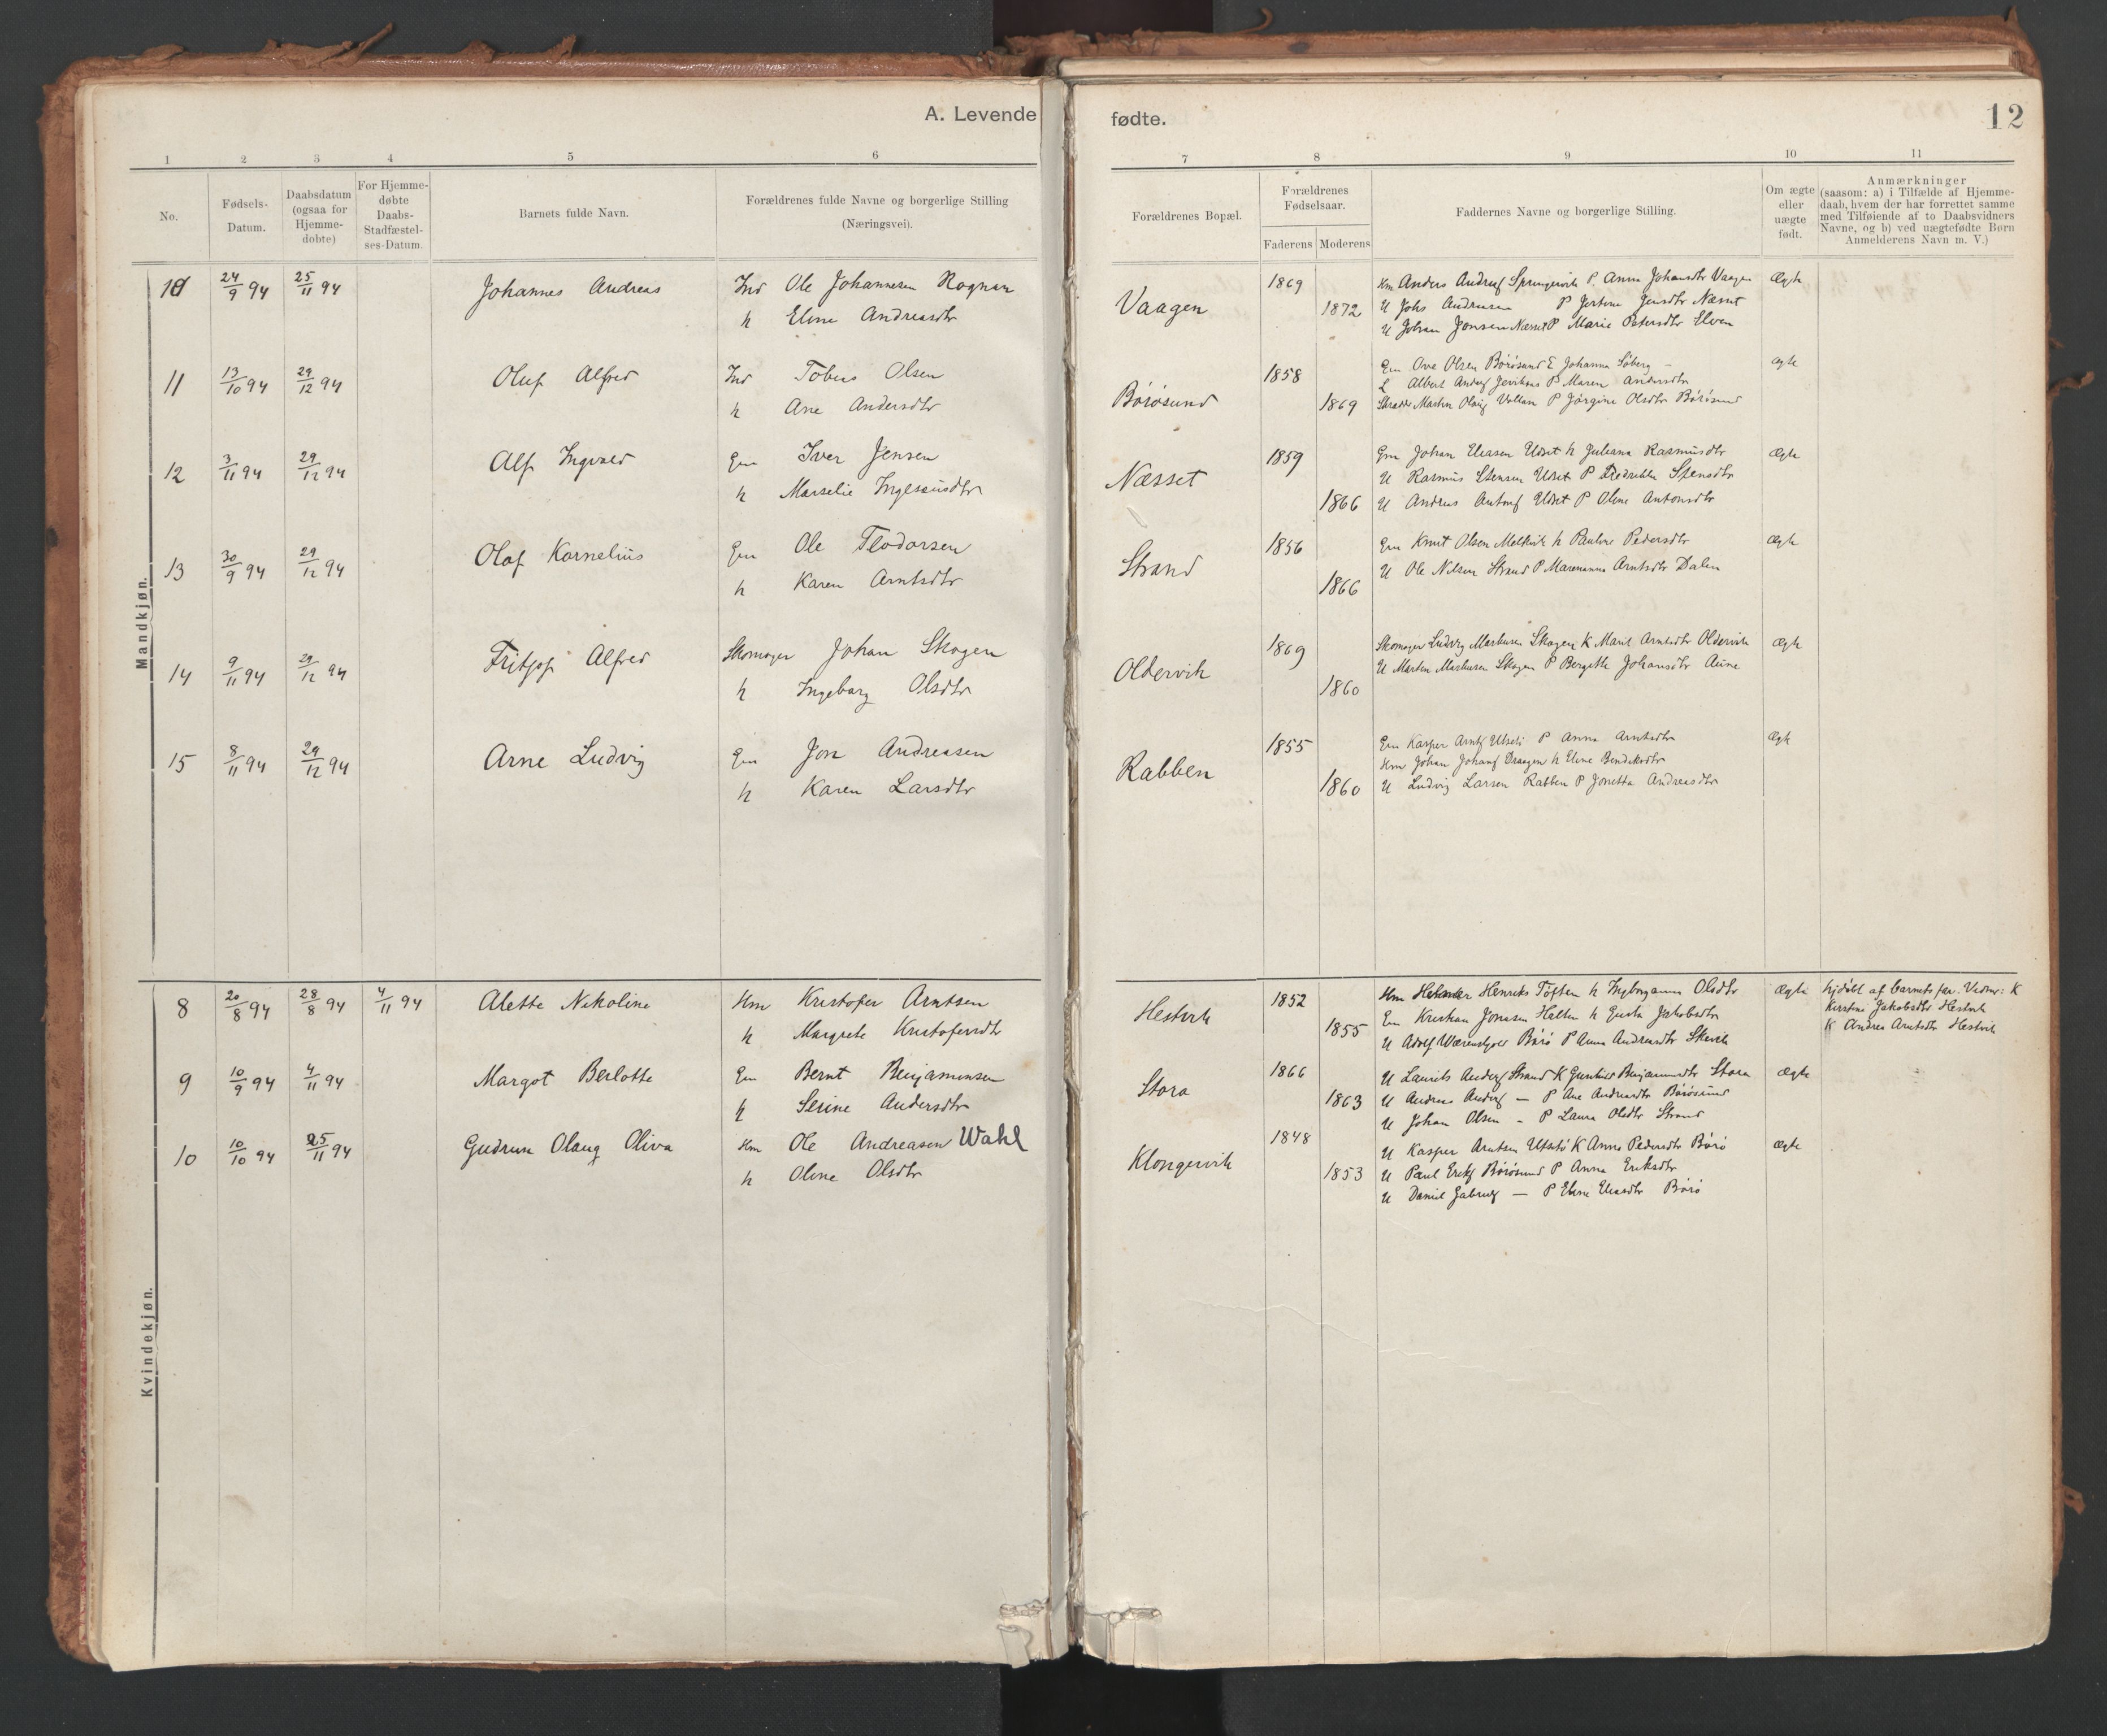 A. Levende fødte. 12
1 2 3 4 5 6 7 8 9 10 11
No.
Fødsels-
Datum.
Daabsdatum
(ogsaa for
Hjemme-
døbte)
For Hjemme-
døbte
Daabs-
Stadfæstel-
ses-Datum.
Barnets fulde Navn.
Forældrenes fulde Navne og borgerlige Stilling
(Næringsvei).
Forældrenes Bopæl.
Forældrenes
Fødselsaar.
Faderens Moderens
Faddernes Navne og borgerlige Stilling.
Om ægte
eller
uægte
født.
Anmærkninger
(saasom: a) i Tilfælde af Hjemme-
daab, hvem der har forrettet samme
med Tilføiende af to Daabsvidners
Navne, og b) ved uægtefødte Børn
Anmelderens Navn m. V.)
Mandkjøn.
10 24/9 94 25/11 94 Johannes Andreas Ind Ole Johannesen Rognan
h Eline Andreasdtr
Vaagen 1869 1872
Anders Andersf Springervik P. Anna Johansdtr Vaagen Ægte
U Johs Andreasen P Jertine Jensdtr Næsset
U Johan Jonsen Næsset P Marie Petersdtr Elven
11 13/10 94 29/12 94 Oluf Alfred Ind Tobias Olsen
h Ane Andersdtr
Børøsund 1858 1869
Gm Ove Olsen Børøsund E Johanna Søberg ægte
L Albert Andersf P Maren Andersdtr
Martin Vollan P Jørgine Olsdtr Børøsund
12 3/11 94 29/12 94 Alf Ingvald Gm Iver Jensen
h Marselie
Næsset 1859 1866
Gm Johan Eliasen Udset h Juliana Rasmusdtr Ægte
U Rasmus Stensen Udset P Stensdtr
U Andreas Antonf Udset P Oline Antonsdtr
13 30/9 94 29/12 94 Olaf Kornelius Gm Ole Teodorsen
h Karen Arntsdtr
Strand 1856 1866
Gm Knut Olsen h Pauline Pedersdtr Ægte
U Ole Nilsen Strand P Marenanna Arntsdtr Dalen
14 9/11 94 29/12 94 Fritjof Alfred Skomager Johan Skogen
h Ingeborg Olsdtr
Oldervik 1869 1860
Skomager Ludvig Markusen Skogen K Marit Arntsdtr Oldervik Ægte
U Martin Markusen Skogen P Bergitte Johansdtr Aune
15 8/11 94 29/12 94 Arne Ludvig Gm Jon Andreasen
h Karen Larsdtr
Rabben 1855 1860
Gm Kasper Arntf Utsetø P Anna Arntsdtr Ægte
Hm Johan Johansf h Eline Bendiksdtr
U Ludvig Larsen Rabben P Jonetta Andreasdtr
Kvindekjøn.
8 20/8 94 28/8 94 4/11 94 Alette Nikoline Hm Kristofer Arntsen
h Margrete Kristofersdtr
Hestvik 1852 1855
Hm Henriks Toften h Ingborganna Olsdtr Ægte hjdøbt af barnets far. Vidner: K
Gm Kristian Jonasen h Gurta Jakobsdtr Kirstina Jakobsdtr Hestvik
U Adolf Børø P Anna Andreasdtr Skevik K Andrea Arntsdtr Hestvik
9 10/9 94 4/11 94 Margot Berlotte Gm Bernt Benjaminsen
h Serine Andersdtr
Storø 1866 1863
U Laurits Andersf Strand K Gunhild Benjaminsdtr Storø ægte
U Andreas Andersf — P Ane Andreasdtr Børøsund
U Johan Olsen - P Laura Olsdtr Strand
10 10/10 94 25/11 94 Gudrun Olaug Oliva Hm Ole Andreasen Wahl
h Oline Olsdtr
Klongervik 1848 1853
U Kasper Arntsen Utsetø K Anna Pedersdtr Børø ægte
U Paul Eriksf Børøsund P Anna Eriksdtr
U Daniel Gabrielsf — P Eline Eliasdtr Børø